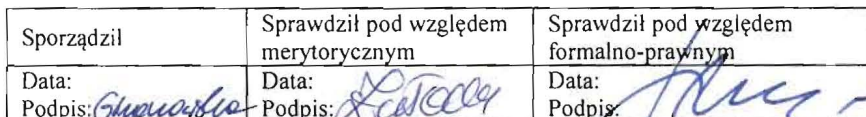 Sporządził
Sprawdził pod względem
merytorycznym
Sprawdził pod względem
formalno-prawnym
Data:
Podpis:
Data:
Podpis:
Data:
Podpis: